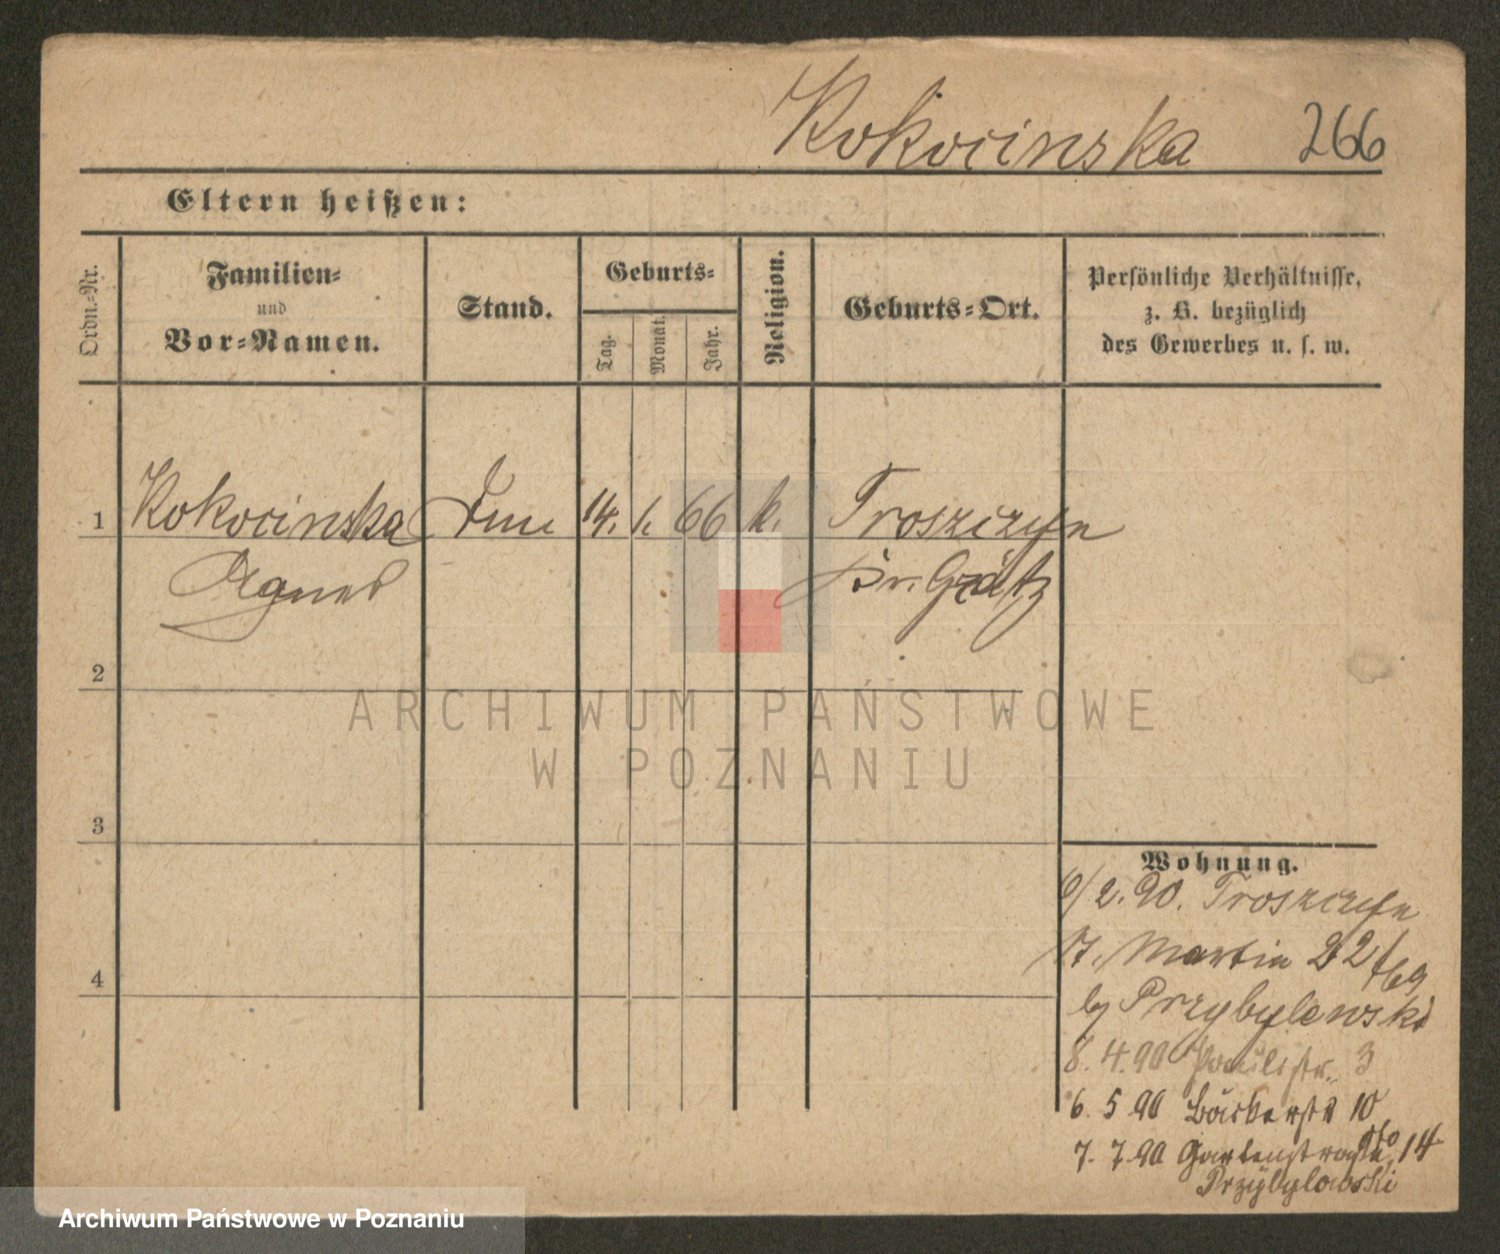 Kokocinska 266
Eltern heißen:
Ordn.-Nr.
Familien-
und
Vor-Namen.
Stand.
Geburts-
Tag.
Monat.
Jahr.
Religion.
Geburts-Ort.
Persönliche Verhältnisse,
z. B. bezüglich
des Gewerbes u. s. w.
1 Kokocinska 14. 1. 66 k. Troszczyn
Agnes Kr. Grätz
2
3
4
Wohnung.
2. 90. Troszczyn
St. Martin 22
Przybylowski
8. 4. 90 Paulistr. 3
6. 5 90 Bäckerstr 10
7. 7. 90 Gartenstraße 14
Przybylowski
ARCHIWUM PAŃSTWOWE
W POZNANIU
Archiwum Państwowe w Poznaniu